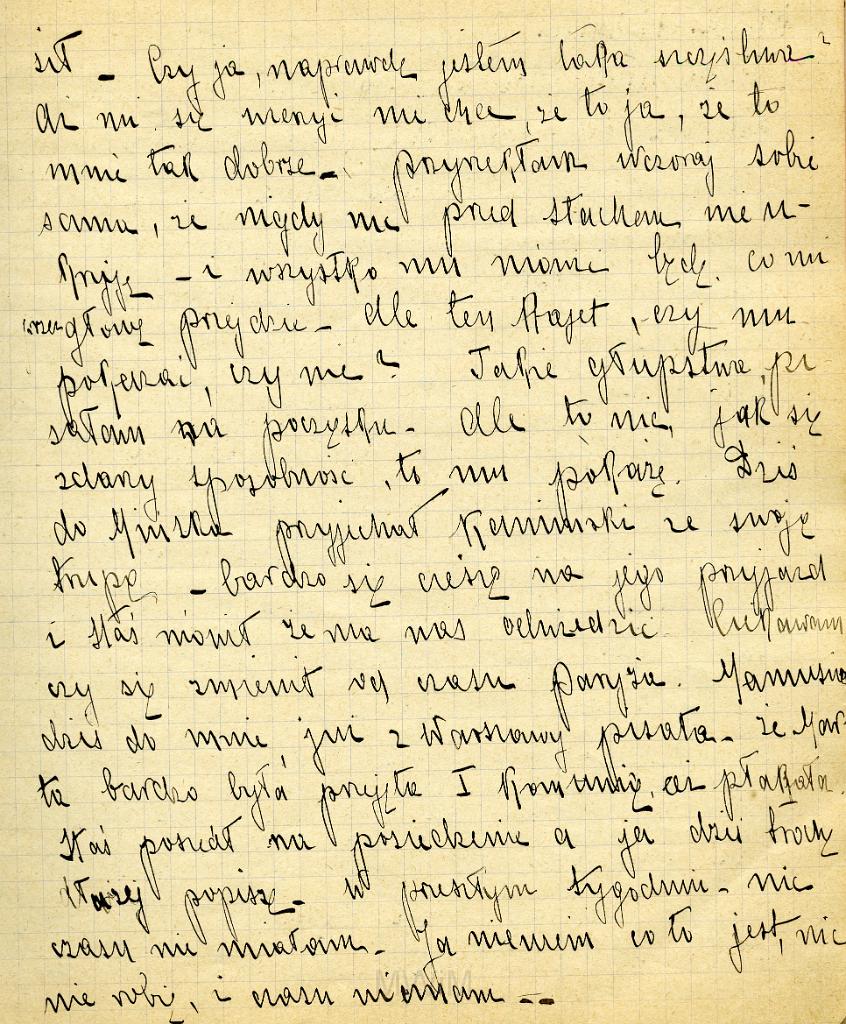 sił – Czy ja, naprawdę jestem taka szczęśliwa?
Aż mi się wierzyć nie chce, że to ja, że to
mnie tak dobrze – przyrzekłam wczoraj sobie
sama, że nigdy nic przed Stachem nie u-
kryję – i wszystko mu mówić będę, co mi
przez głowę przejdzie – Ale ten kajet, czy mu
pokazać, czy nie? Takie głupstwa, pi-
sałam na początku – Ale to nic, jak się
zdarzy sposobność, to mu pokażę. Dziś
do Mińska przyjechał Kamiński ze swoją
trupą – bardzo się cieszę na jego przyjazd
i Staś mówił że ma nas odwiedzić. Ciekawam
czy się zmienił od czasu Paryża. Mamusia
dziś do mnie, już z Warszawy pisała – że Mar-
ta bardzo była przyjęta I Komunią, aż płakała.
Staś poszedł na posiedzenie a ja dziś trochę
dłużej popiszę – W przeszłym tygodniu – nic
czasu nie miałam – Ja niewiem co to jest, nic
nie robię, i czasu niemam --